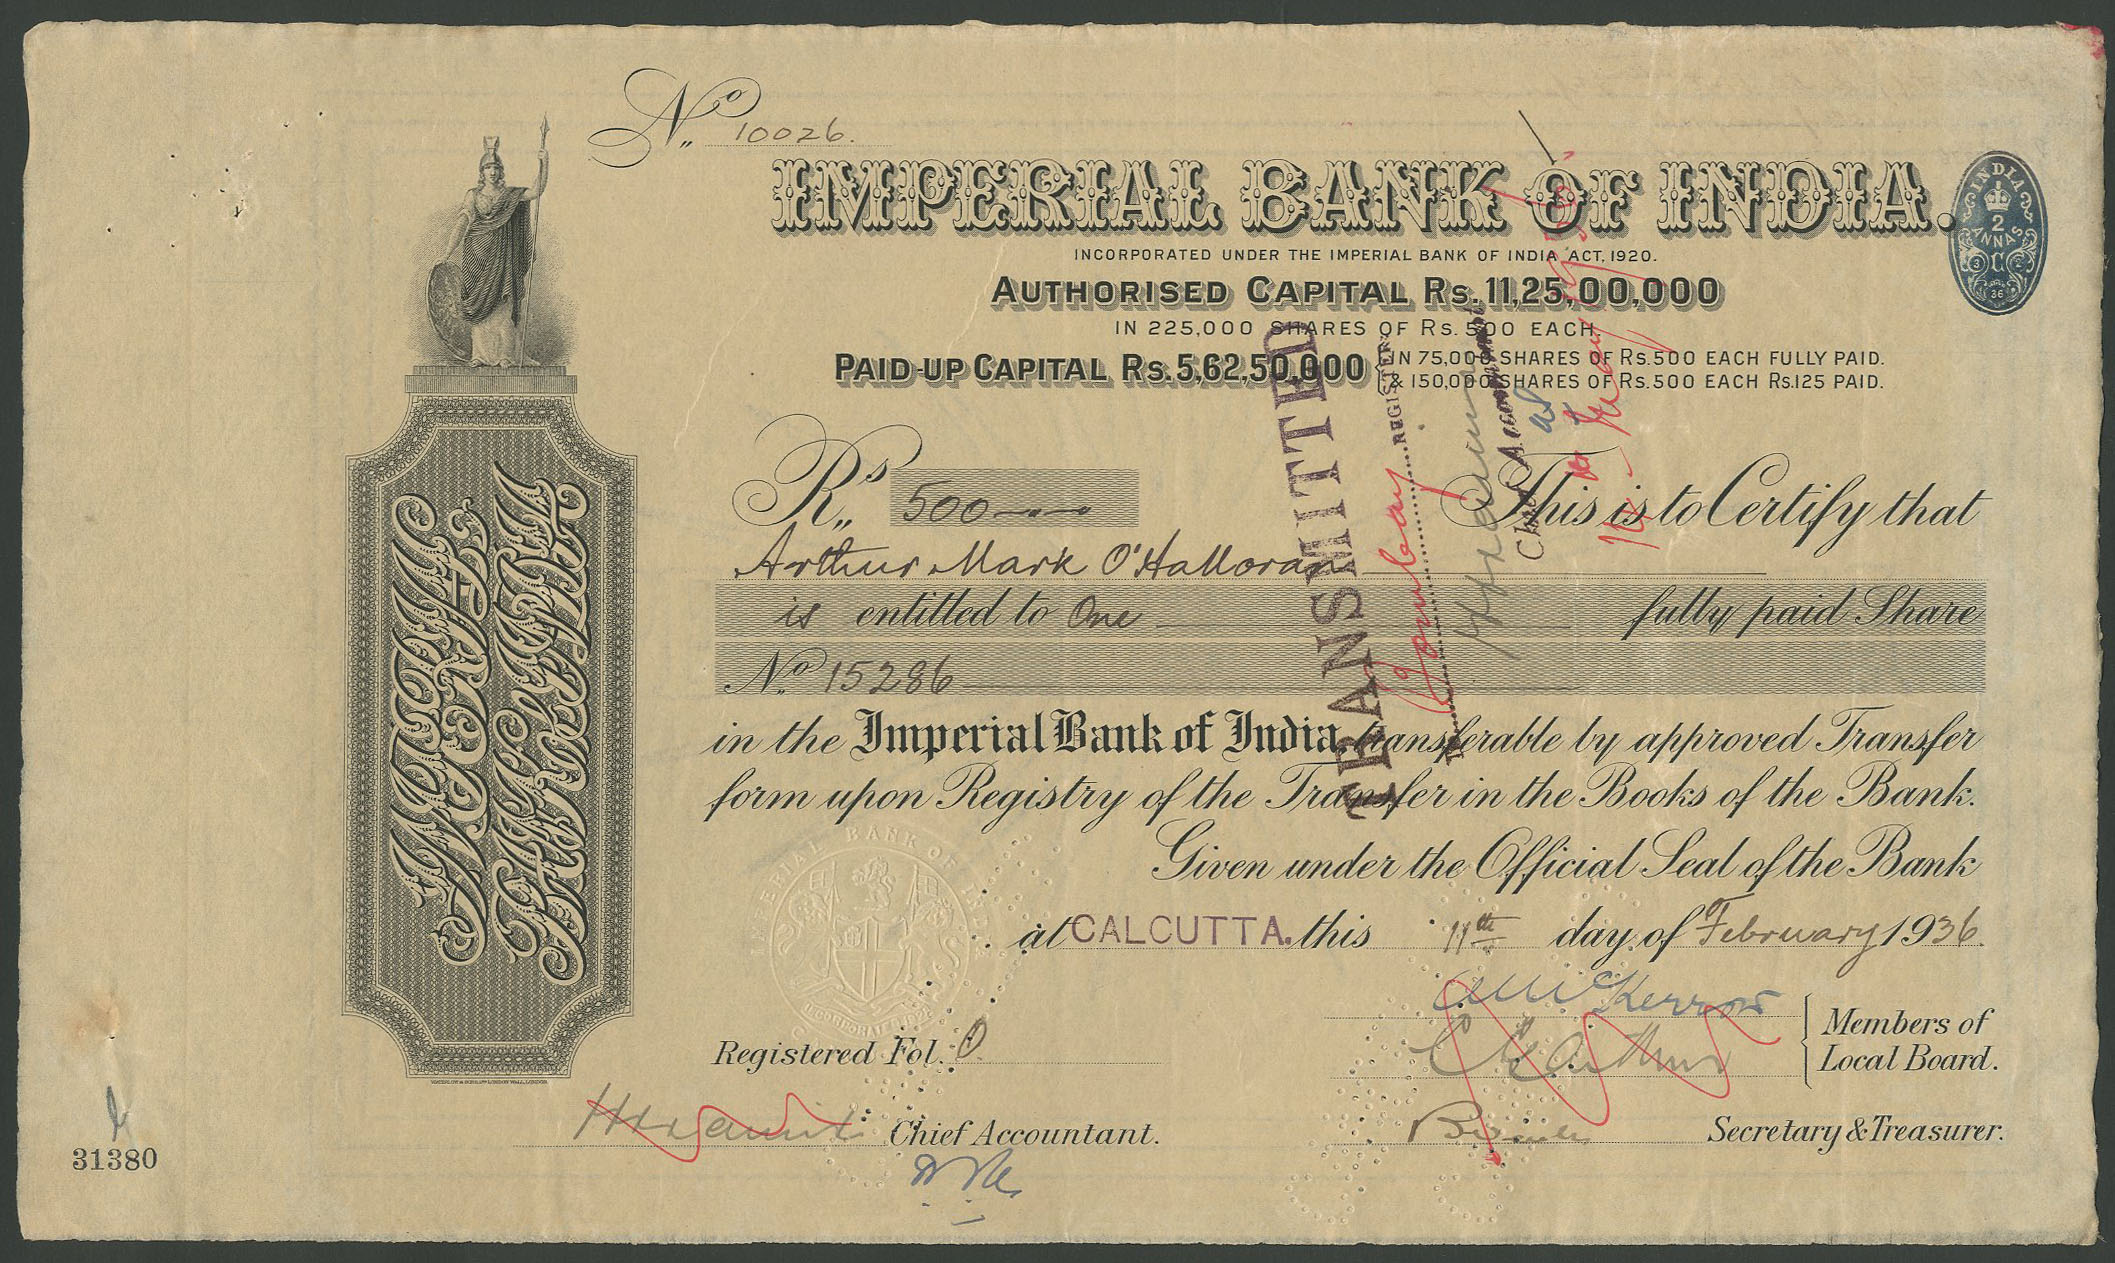 No 10026.
IMPERIAL BANK OF INDIA.
INCORPORATED UNDER THE IMPERIAL BANK OF INDIA ACT, 1920.
AUTHORISED CAPITAL Rs. 11,25,00,000
IN 225,000 SHARES OF Rs. 500 EACH.
PAID-UP CAPITAL Rs. 5,62,50,000 { IN 75,000 SHARES OF Rs. 500 EACH FULLY PAID.
& 150,000 SHARES OF Rs. 500 EACH Rs. 125 PAID.
INDIA
2
ANNAS
36
IMPERIAL
BANK OF INDIA
Rs 500
This is to Certify that
Arthur Mark O'Halloran
is entitled to One fully paid Share
No 15286
in the Imperial Bank of India, transferable by approved Transfer
form upon Registry of the Transfer in the Books of the Bank.
Given under the Official Seal of the Bank
at CALCUTTA. this 11th day of February 1936.
TRANSMITTED
Bombay REGISTER
Chief Accountant
IMPERIAL BANK OF INDIA
INCORPORATED 1920
Members of
Local Board.
Registered Fol.
Chief Accountant.
Secretary & Treasurer.
WATERLOW & SONS LTD LONDON WALL, LONDON.
31380